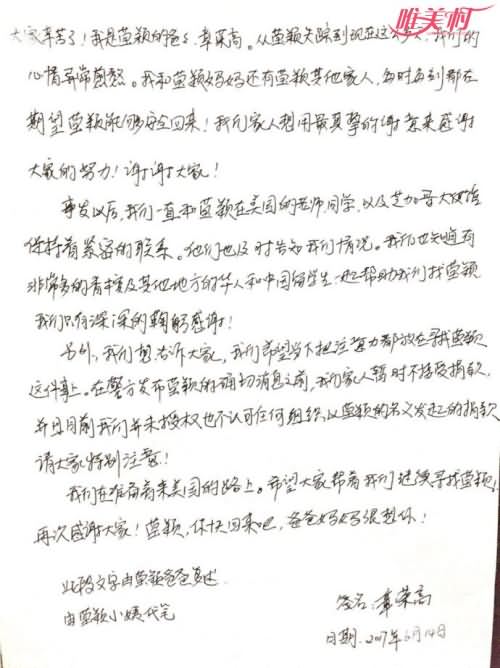 唯美村
大家辛苦了!我是莹颖的爸爸章荣高。从莹颖失踪到现在这个多天,我们的
心情异常煎熬。我和莹颖妈妈还有莹颖其他家人,每时每刻都在
期望莹颖能够安全回来!我们家人想用最真挚的谢意来感谢
大家的努力!谢谢大家!
事发以后,我们一直和莹颖在美国的老师、同学,以及芝加哥大使馆
保持着紧密的联系。他们也及时告知我们情况。我们也知道有
非常多的香槟及其他地方的华人和中国留学生一起帮助我们找莹颖
我们只有深深的鞠躬感谢!
另外,我们想告诉大家,我们希望当下把注意力都放在寻找莹颖
这件事上。在警方发布莹颖的确切消息之前,我们家人暂时不接受捐款,
并且目前我们并未授权也不认可任何组织以莹颖的名义发起的捐款
请大家特别注意!
我们在准备着来美国的路上。希望大家帮着我们继续寻找莹颖!
再次感谢大家!莹颖,你快回来吧,爸爸妈妈很想你!
此段文字由莹颖爸爸口述
由莹颖小姨代写
签名:章荣高
日期:2017年6月14日